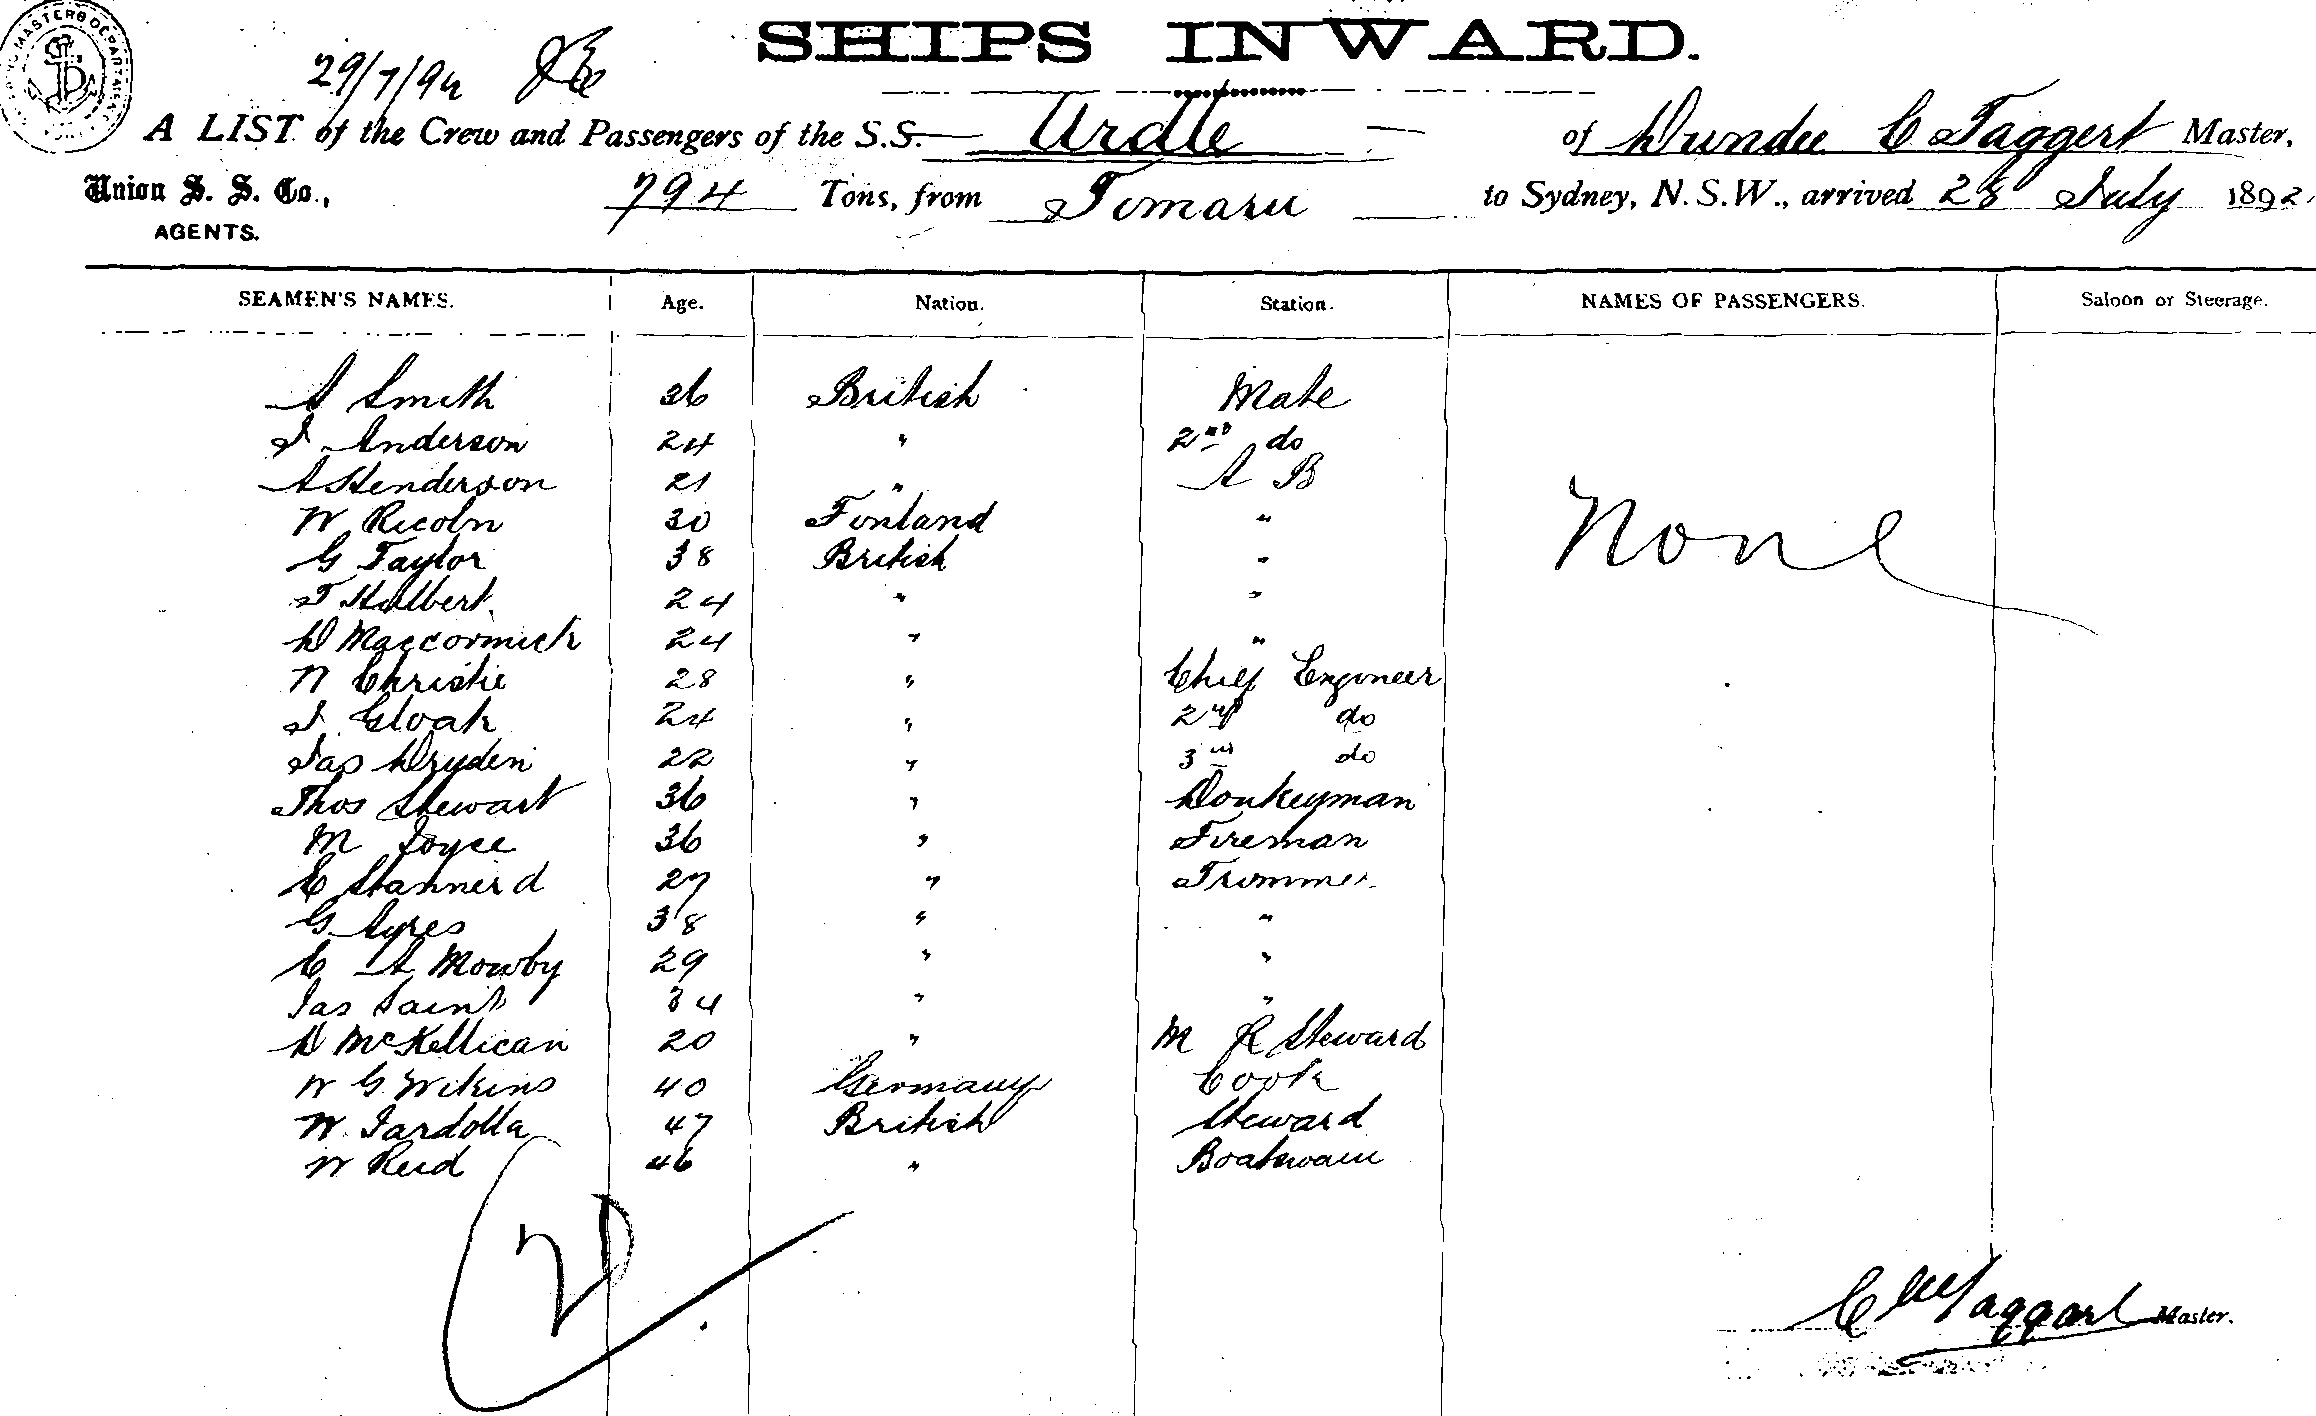 SHIPS INWARD.
29/7/92
A LIST of the Crew and Passengers of the S.S. Ardle of Dundee C Taggert Master,
Union S. S. Co., AGENTS. 794 Tons, from Timaru to Sydney, N.S.W., arrived 28 July 1892
SEAMEN'S NAMES. Age. Nation. Station. NAMES OF PASSENGERS. Saloon or Steerage.
A Smith 36 British Mate
J Anderson 24 " 2nd do
A Henderson 21 " A B
W Ricobn 30 Finland "
None
G Taylor 38 British "
T Hulbert 24 " "
D Maccormick 24 " "
N Christie 28 " Chief Engineer
J Gloak 24 " 2nd do
Jas Dryden 22 " 3rd do
Thos Stewart 36 " Donkeyman
M Joyce 36 " Fireman
C Stannerd 27 " Trimmer
G Ayres 38 " "
C A Mowby 29 " "
Jas Saint 34 " "
D McKellican 20 " M R Steward
W G Wikins 40 Germany Cook
W Jardolla 47 British Steward
W Reid 46 " Boatswain
C McTaggart Master.